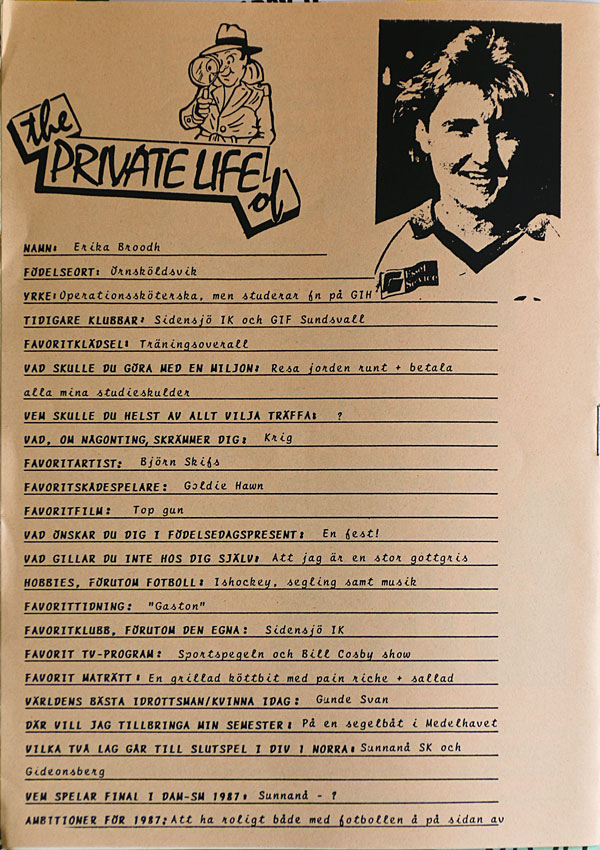 the
PRIVATE LIFE
of
Esel
Service
NAMN: Erika Broodh
FÖDELSEORT: Örnsköldsvik
YRKE: Operationssköterska, men studerar fn på GIH
TIDIGARE KLUBBAR: Sidensjö IK och GIF Sundsvall
FAVORITKLÄDSEL: Träningsoverall
VAD SKULLE DU GÖRA MED EN MILJON: Resa jorden runt + betala
alla mina studieskulder
VEM SKULLE DU HELST AV ALLT VILJA TRÄFFA: ?
VAD, OM NÅGONTING, SKRÄMMER DIG: Krig
FAVORITARTIST: Björn Skifs
FAVORITSKÅDESPELARE: Goldie Hawn
FAVORITFILM: Top gun
VAD ÖNSKAR DU DIG I FÖDELSEDAGSPRESENT: En fest!
VAD GILLAR DU INTE HOS DIG SJÄLV: Att jag är en stor gottgris
HOBBIES, FÖRUTOM FOTBOLL: Ishockey, segling samt musik
FAVORITTIDNING: "Gaston"
FAVORITKLUBB, FÖRUTOM DEN EGNA: Sidensjö IK
FAVORIT TV-PROGRAM: Sportspegeln och Bill Cosby show
FAVORIT MATRÄTT: En grillad köttbit med pain riche + sallad
VÄRLDENS BÄSTA IDROTTSMAN/KVINNA IDAG: Gunde Svan
DÄR VILL JAG TILLBRINGA MIN SEMESTER: På en segelbåt i Medelhavet
VILKA TVÅ LAG GÅR TILL SLUTSPEL I DIV I NORRA: Sunnanå SK och
Gideonsberg
VEM SPELAR FINAL I DAM-SM 1987: Sunnanå - ?
AMBITIONER FÖR 1987: Att ha roligt både med fotbollen å på sidan av